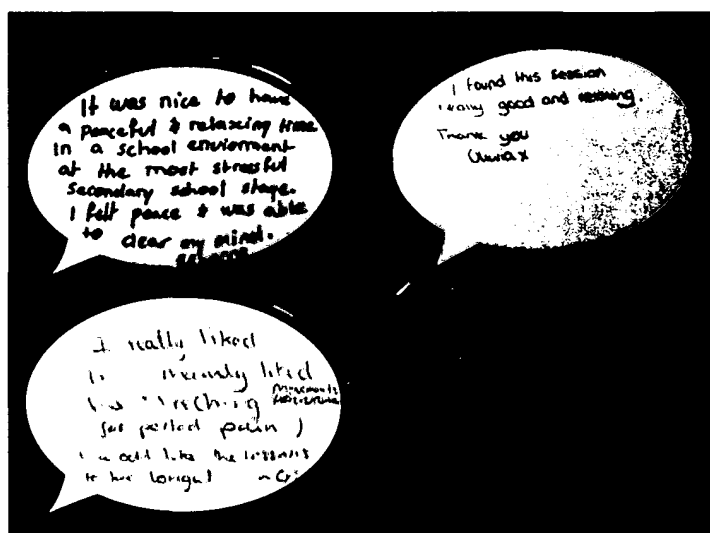 It was nice to have
a peaceful & relaxing time
in a school enviorment
at the most stressful
secondary school stage.
I felt peace & was able
to clear my mind.
I found this session
really good and relaxing.
Thank you
I really liked
liked
Movements
for period pain)
I would like the lessons
to be longer!